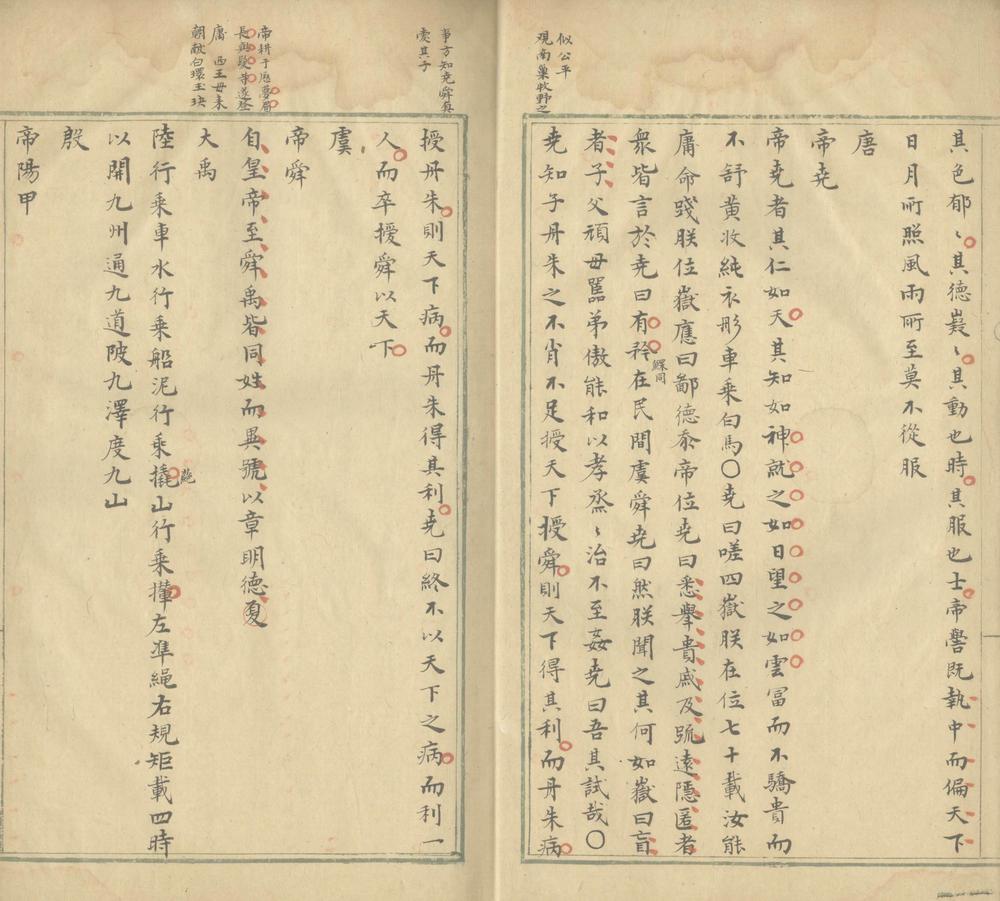 似公平
观南巢牧野之
其色郁〻其德嶷〻其動也時其服也士帝嚳既執中而徧天下
日月所照風雨所至莫不從服
唐
帝堯
帝堯者其仁如天其知如神就之如日望之如雲富而不驕貴而
不舒黃收純衣彤車乘白馬〇堯曰嗟四嶽朕在位七十載汝能
庸命踐朕位嶽應曰鄙德忝帝位堯曰悉舉貴戚及疏遠隱匿者
衆皆言於堯曰有矜鰥同在民間虞舜堯曰然朕聞之其何如嶽曰盲
者子父頑母嚚弟傲能和以孝烝〻治不至姦堯曰吾其試哉〇
堯知子丹朱之不肖不足授天下授舜則天下得其利而丹朱病
事方知堯舜真
愛其子
授丹朱則天下病而丹朱得其利堯曰終不以天下之病而利一
人而卒授舜以天下
虞
帝舜
帝耕于歷夢眉
長與髮等遂登
庸 西王母來
朝献白環玉玦
自皇帝至舜禹皆同姓而異號以章明德夏
大禹
陸行乘車水行乘船泥行乘橇蕝山行乘檋左準繩右規矩載四時
以開九州通九道陂九澤度九山
殷
帝陽甲